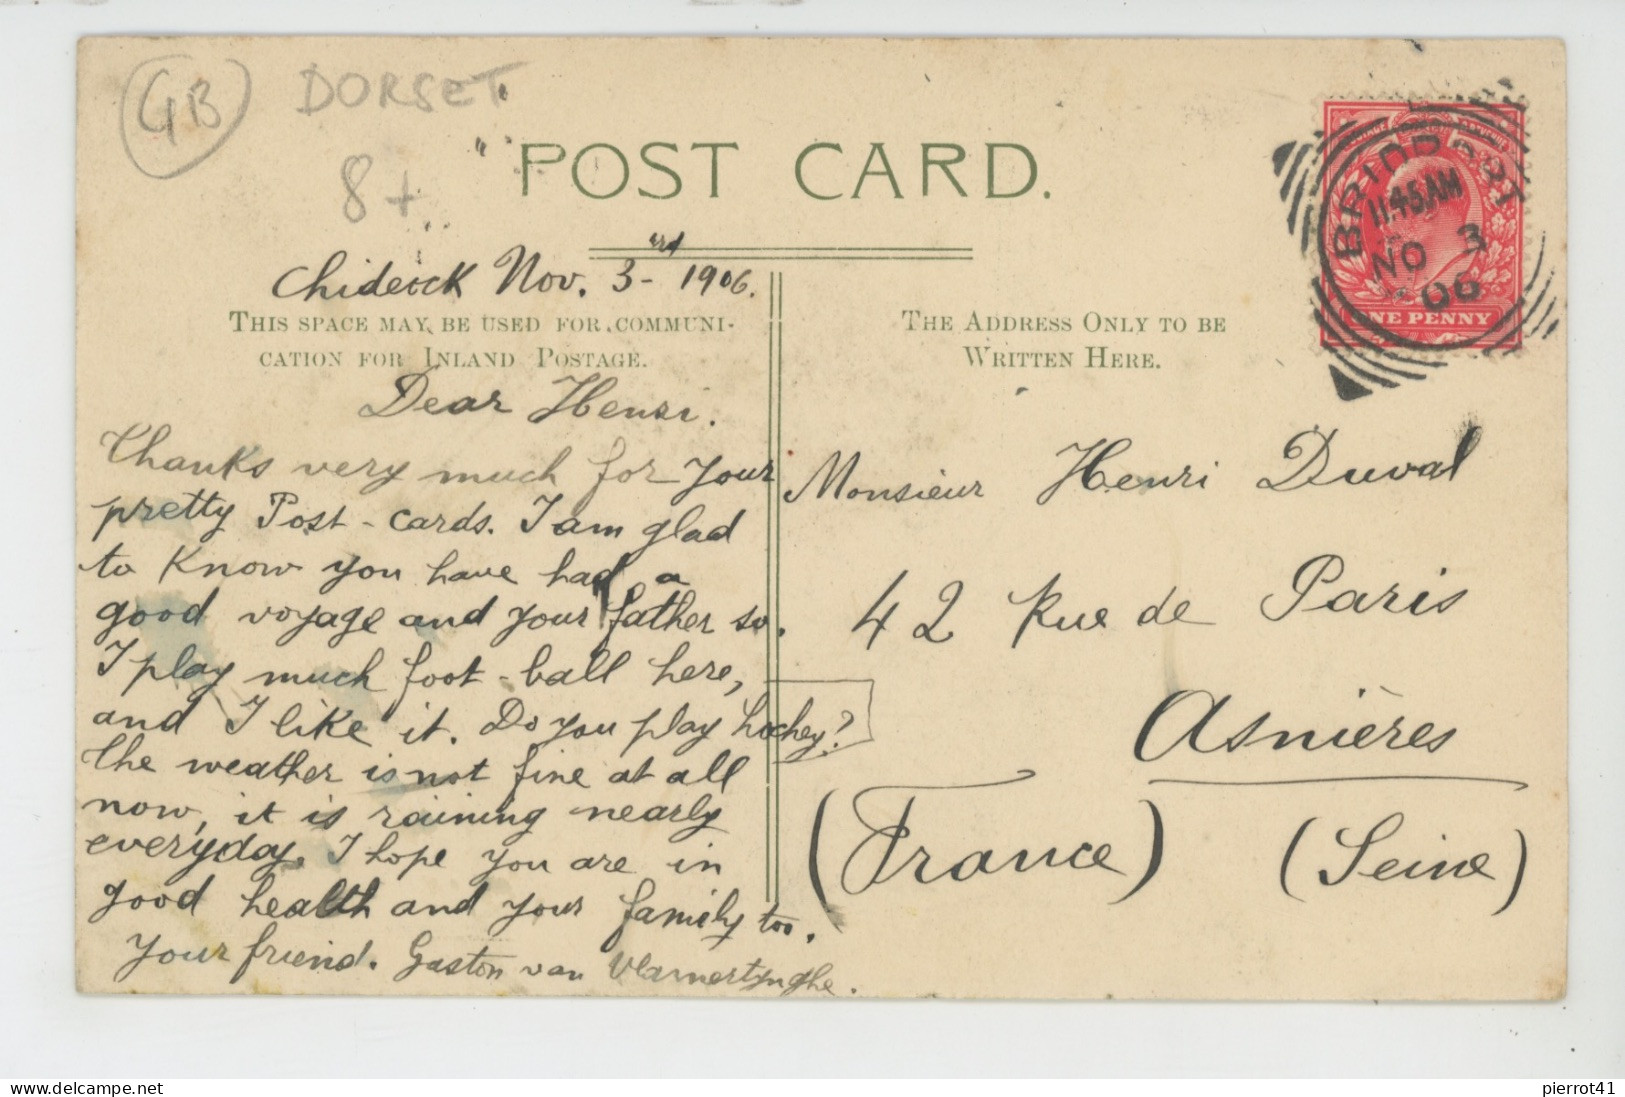 GB
DORSET
8+
POST CARD.
BRIDPORT
11.45AM
NO 3
06
ONE PENNY
Chideock Nov. 3rd- 1906.
THIS SPACE MAY BE USED FOR COMMUNI-
CATION FOR INLAND POSTAGE.
THE ADDRESS ONLY TO BE
WRITTEN HERE.
Dear Henri.
Thanks very much for your
pretty Post-cards. I am glad
to know you have had a
good voyage and your father so.
I play much foot-ball here,
and I like it. Do you play hockey?
the weather is not fine at all
now, it is raining nearly
everyday. I hope you are in
good health and your family too.
Your friend. Gaston van Vlamertynghe.
Monsieur Henri Duval
42 Rue de Paris
Asnières
(France) (Seine)
www.delcampe.net
pierrot41